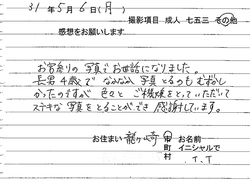 31年5月6日(月)
撮影項目 成人 七五三 その他
感想をお願いします
お宮参りの写真でお世話になりました。
長男4歳で なかなか写真とるのもむずかし
かったのですが 色々と ご機嫌をとっていただいて
ステキな写真をとることができ 感謝しています。
お住まい 龍ヶ崎 市町村 お名前 イニシャルで
T.T